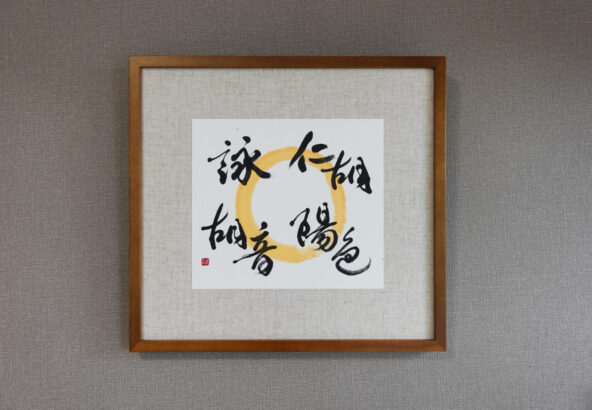 仁胡陽色
詠胡音